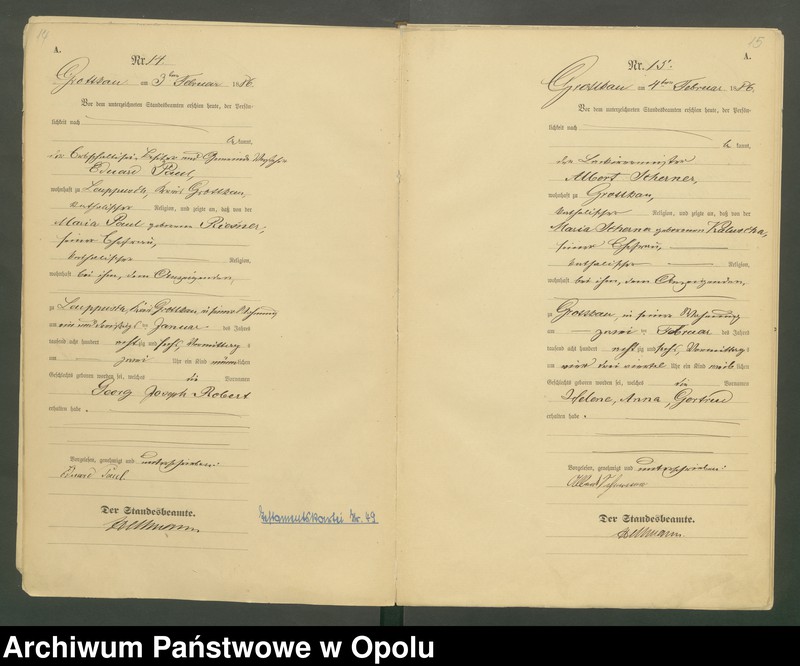 14
A.
Nr. 14
Grottkau am 3ten Februar 1886.
Vor dem unterzeichneten Standesbeamten erschien heute, der Persön-
lichkeit nach
kannt,
der Besitzer und Gemeinde
Eduard Paul,
wohnhaft zu Leuppusch, Kreis Grottkau,
katholischer Religion, und zeigte an, daß von der
Maria Paul geborenen
seiner Ehefrau,
katholischer Religion,
wohnhaft bei ihm, dem Anzeigenden,
zu Leuppusch, Kreis Grottkau, in seiner Wohnung
am ein und dreißigsten Januar des Jahres
tausend acht hundert achtzig und sechs, Vormittags
um zwei Uhr ein Kind männlichen
Geschlechts geboren worden ist, welches die Vornamen
Georg Joseph Robert
erhalten habe.
Vorgelesen, genehmigt und unterschrieben:
Eduard Paul
Der Standesbeamte.
Testamentskartei Nr. 49
15
A.
Nr. 15.
Grottkau am 4ten Februar 1886.
Vor dem unterzeichneten Standesbeamten erschien heute, der Persön-
lichkeit nach
kannt,
der
Albert Scherner,
wohnhaft zu Grottkau,
katholischer Religion, und zeigte an, daß von der
Maria Scherner geborenen
seiner Ehefrau,
katholischer Religion,
wohnhaft bei ihm, dem Anzeigenden,
zu Grottkau, in seiner Wohnung
am zwei ten Februar des Jahres
tausend acht hundert achtzig und sechs, Vormittags
um drei viertel Uhr ein Kind weiblichen
Geschlechts geboren worden ist, welches die Vornamen
Helene, Anna, Gertrud
erhalten habe.
Vorgelesen, genehmigt und unterschrieben:
Albert Scherner
Der Standesbeamte.
Archiwum Państwowe w Opolu